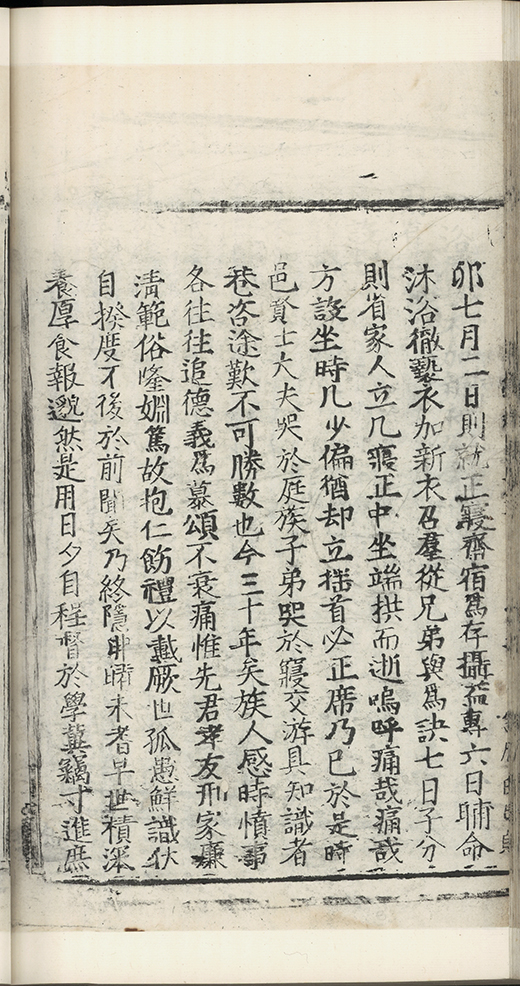 卯七月二日則就正寢齋宿爲存攝益專六日晡命
沐浴徹褻衣加新衣召羣從兄弟與爲訣七日子分
則省家人立几寢正中坐端拱而逝嗚呼痛哉痛哉
方設坐時几少偏猶却立搖首必正席乃已於是時
邑賢士大夫哭於庭族子弟哭於寢交游具知識者
巷咨途歎不可勝數也今三十年矣族人感時憤事
各往往追德義爲慕頌不衰痛惟先君孝友刑家廉
清範俗隆婣篤故抱仁飭禮以戴厥世孤愚鮮識伏
自揆度不後於前聞矣乃終隱未耆早世積深
養厚食報邈然是用日夕自程督於學冀竊寸進庶